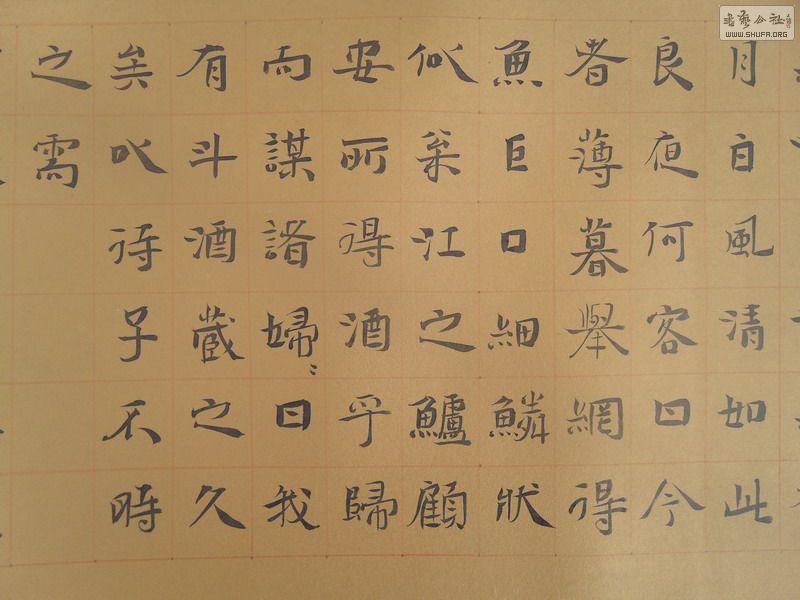 月白風清如此
良夜何客曰今
者薄暮舉網得
魚巨口細鱗狀
似枀江之鱸顧
安所得酒乎歸
而謀諸婦〻曰我
有斗酒藏之久
矣以待子不時
之需
書藝公社
WWW.SHUFA.ORG